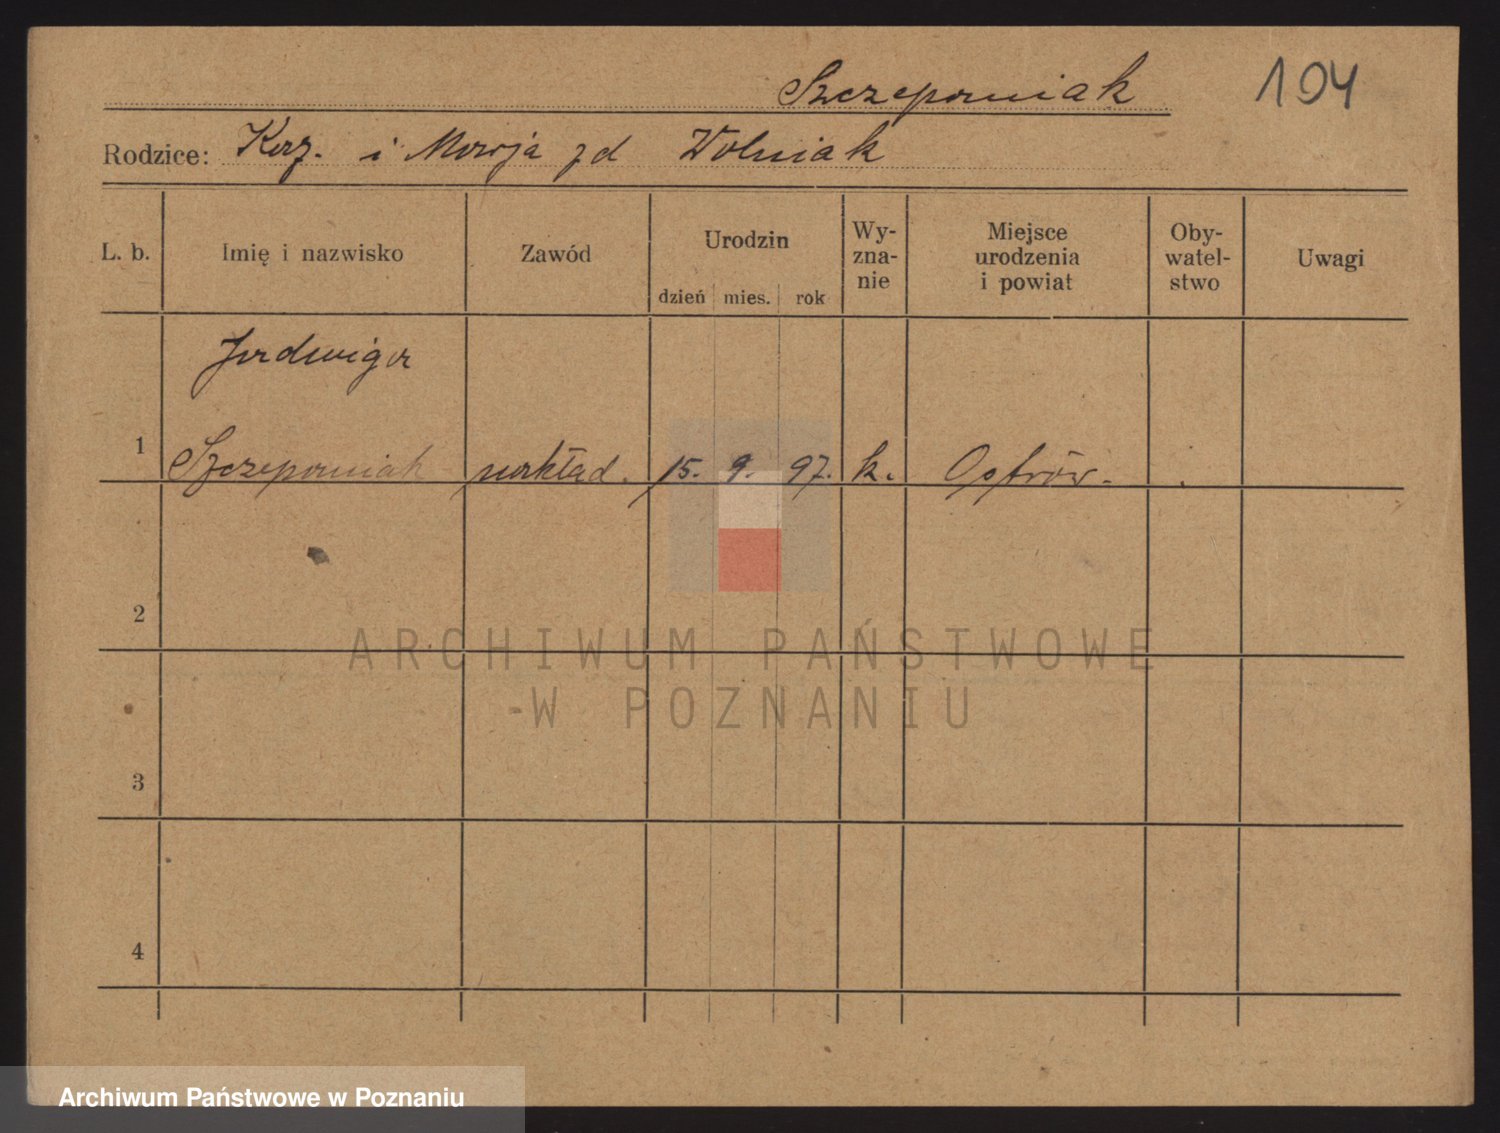 Szczepaniak 104
Rodzice: Kaz. i Marja zd Wolniak
L. b. Imię i nazwisko Zawód Urodzin dzień mies. rok Wy-zna-nie Miejsce urodzenia i powiat Oby-watel-stwo Uwagi
Jadwiga
1 Szczepaniak nakład. 15. 9. 97. k. Ostrów.
2
ARCHIWUM PAŃSTWOWE
W POZNANIU
3
4
Archiwum Państwowe w Poznaniu